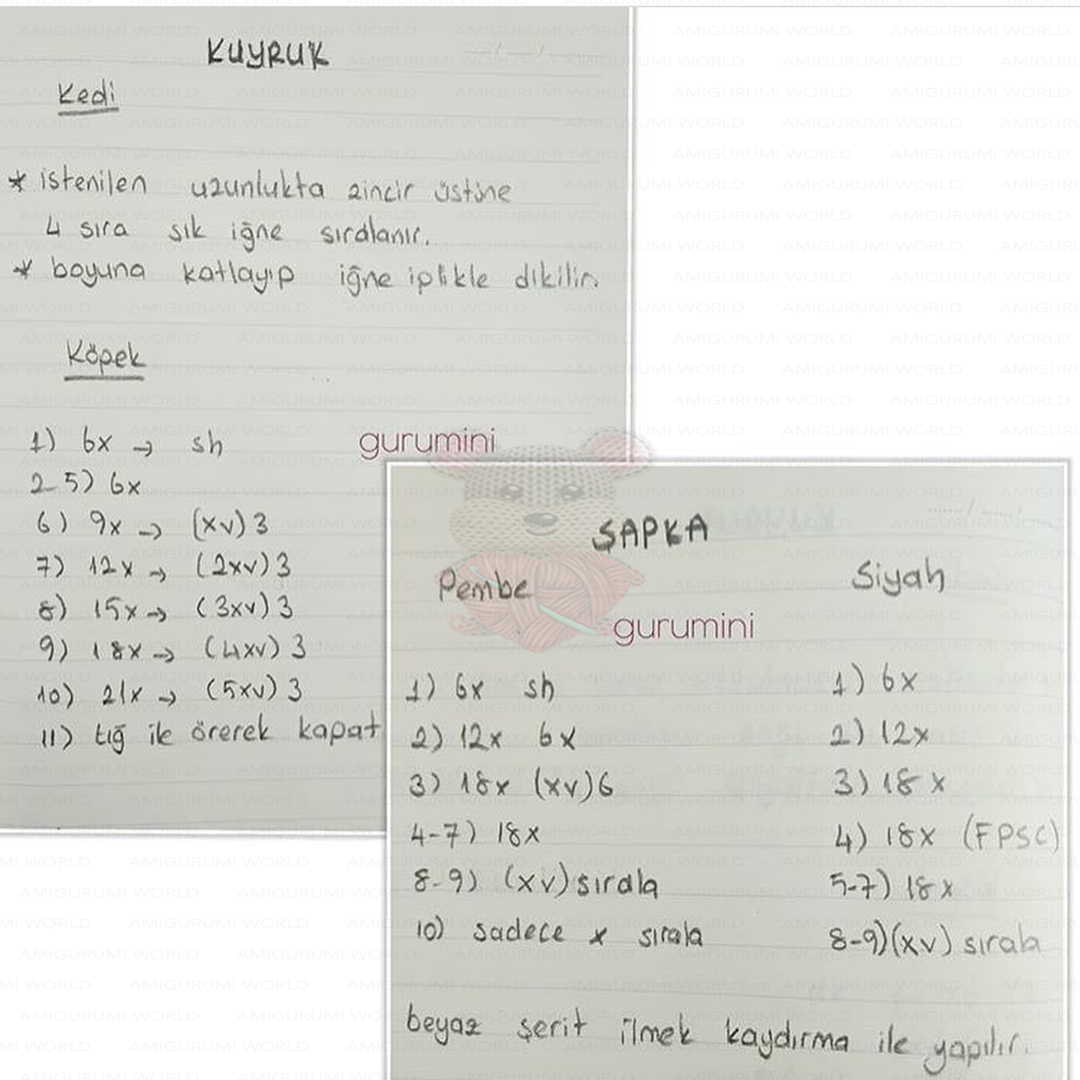 KUYRUK
Kedi
* istenilen uzunlukta zincir üstüne
4 sıra sık iğne sıralanır.
* boyuna katlayıp iğne iplikle dikilir.
Köpek
1) 6x → sh
2-5) 6x
6) 9x → (xv)3
7) 12x → (2xv)3
8) 15x → (3xv)3
9) 18x → (4xv)3
10) 21x → (5xv)3
11) tığ ile örerek kapat
gurumini
ŞAPKA
Pembe
1) 6x sh
2) 12x 6x
3) 18x (xv)6
4-7) 18x
8-9) (xv)sırala
10) sadece x sırala
Siyah
1) 6x
2) 12x
3) 18x
4) 18x (FPSC)
5-7) 18x
8-9)(xv) sırala
beyaz şerit ilmek kaydırma ile yapılır.
gurumini
AMIGURUMI WORLD